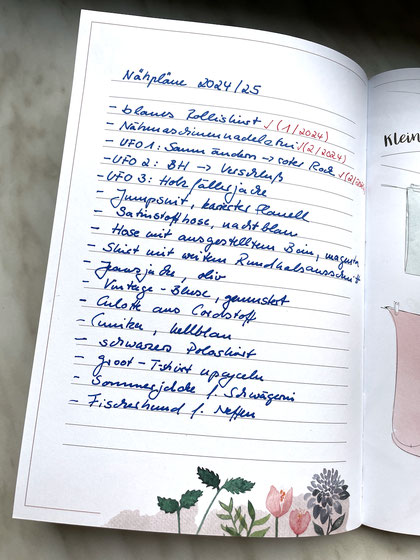 Nähpläne 2024/25
- blaues Rollishirt √(1/2024)
- Nähmaschinennadeletui √(2/2024)
- UFO 1: Saum ändern → roter Rock √(2/202
- UFO 2: BH → Verschluß
- UFO 3: Holzfällerjacke
- Jumpsuit, karierter Flanell
- Satinstoffhose, nachtblau
- Hose mit ausgestelltem Bein, magenta
- Shirt mit weitem Rundhalsausschnitt
- Jeansjacke, oliv
- Vintage-Bluse, gemustert
- Culotte aus Cordstoff
- Tunika, hellblau
- schwarzes Poloshirt
- groot-T-Shirt upcyceln
- Sommerjacke f. Schwägerin
- Fischerhemd f. Neffen
Klein